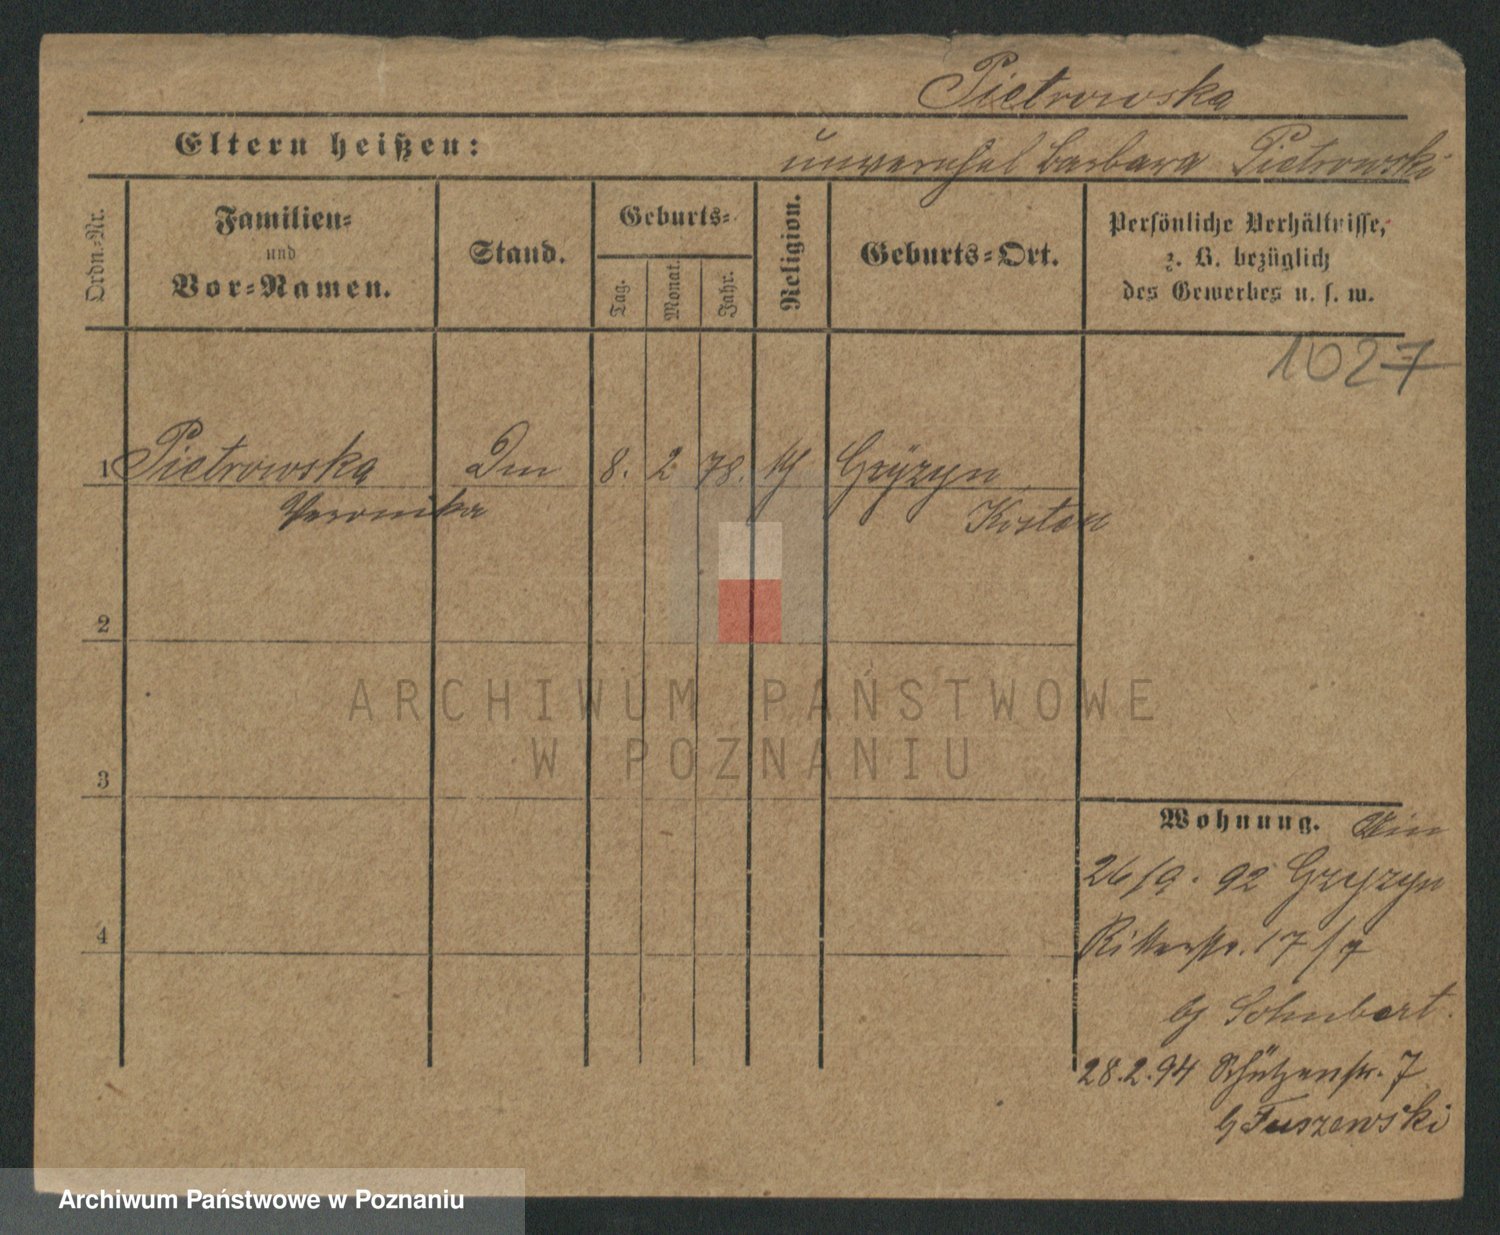 Pietrowska
Eltern heißen: unverehel Barbara Pietrowski
Ordn.=Nr.
Familien=
und
Vor=Namen.
Stand.
Geburts=
Tag.
Monat.
Jahr.
Religion.
Geburts=Ort.
Persönliche Verhältnisse,
z. B. bezüglich
des Gewerbes u. s. w.
1027
1 Pietrowska 8. 2 78. Gryzyn
Veronika Kosten
2
ARCHIWUM PAŃSTWOWE
W POZNANIU
3
Wohnung.
26/9. 92 Gryzyn
4
Ritterstr. 17/
Schubert.
28.2.94 Schützenstr. 7
Tuszewski
Archiwum Państwowe w Poznaniu